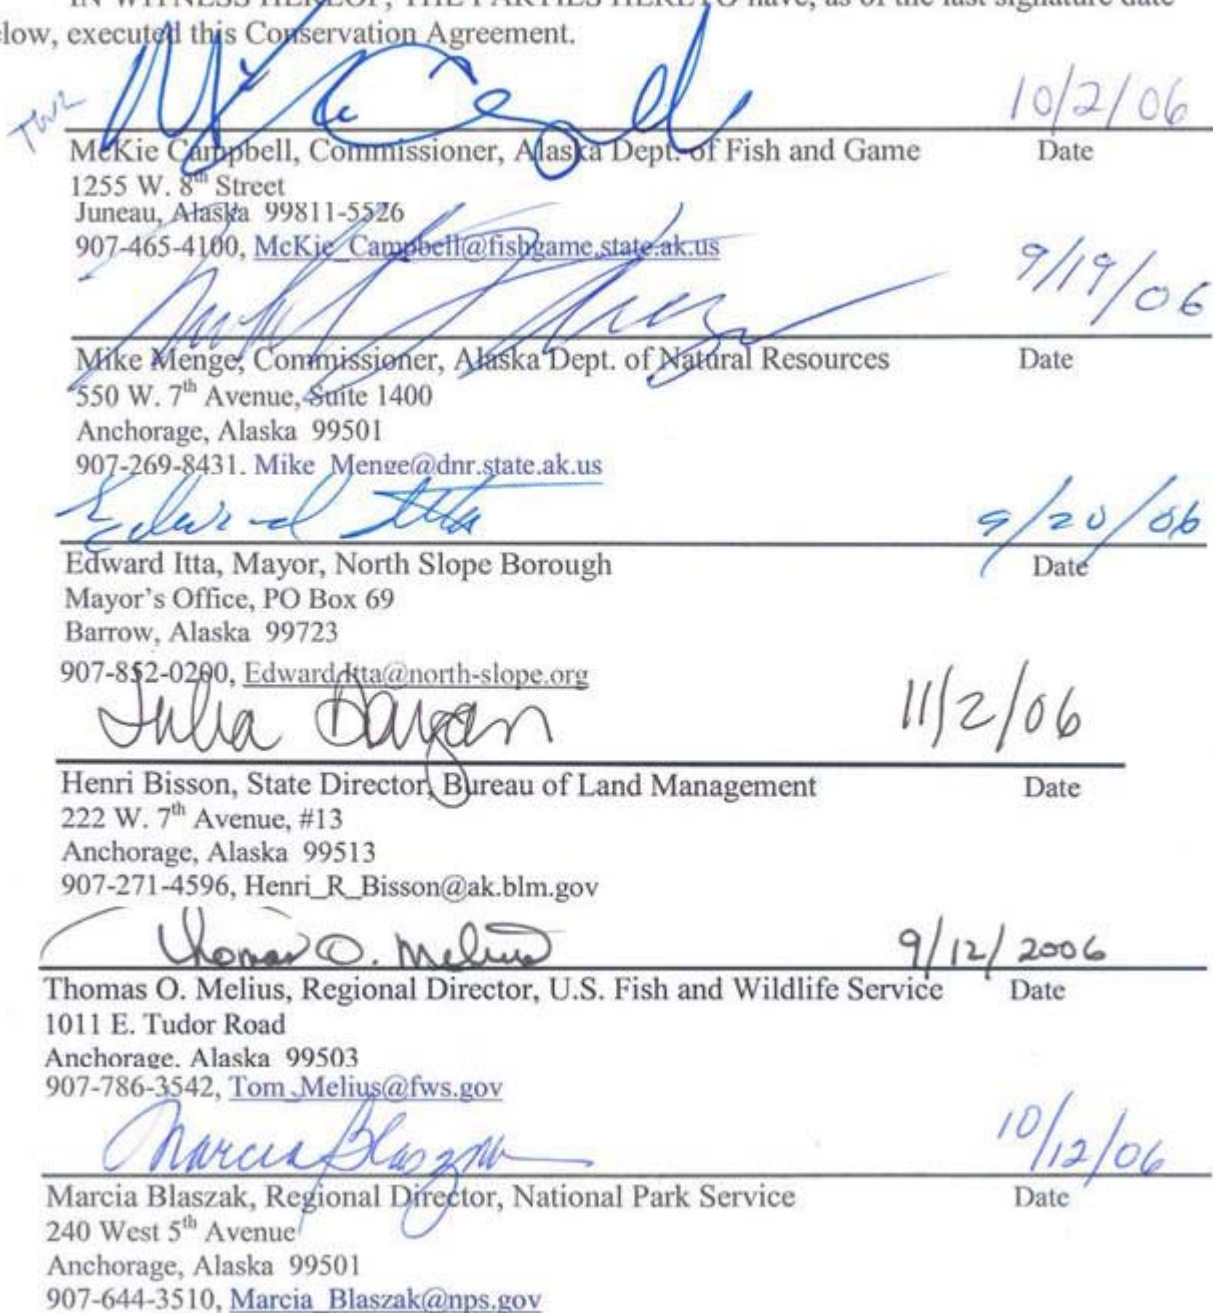 IN WITNESS HEREOF, THE PARTIES HERETO have, as of the last signature date
elow, executed this Conservation Agreement.
TWL
McKie Campbell 10/2/06
McKie Campbell, Commissioner, Alaska Dept. of Fish and Game Date
1255 W. 8th Street
Juneau, Alaska 99811-5526
907-465-4100, McKie_Campbell@fishgame.state.ak.us
9/19/06
Mike Menge, Commissioner, Alaska Dept. of Natural Resources Date
550 W. 7th Avenue, Suite 1400
Anchorage, Alaska 99501
907-269-8431. Mike_Menge@dnr.state.ak.us
Edward Itta 9/20/06
Edward Itta, Mayor, North Slope Borough Date
Mayor's Office, PO Box 69
Barrow, Alaska 99723
907-852-0200, Edward.Itta@north-slope.org
Julia Dougan 11/2/06
Henri Bisson, State Director, Bureau of Land Management Date
222 W. 7th Avenue, #13
Anchorage, Alaska 99513
907-271-4596, Henri_R_Bisson@ak.blm.gov
Thomas O. Melius 9/12/2006
Thomas O. Melius, Regional Director, U.S. Fish and Wildlife Service Date
1011 E. Tudor Road
Anchorage. Alaska 99503
907-786-3542, Tom_Melius@fws.gov
Marcia Blaszak 10/12/06
Marcia Blaszak, Regional Director, National Park Service Date
240 West 5th Avenue
Anchorage, Alaska 99501
907-644-3510, Marcia_Blaszak@nps.gov